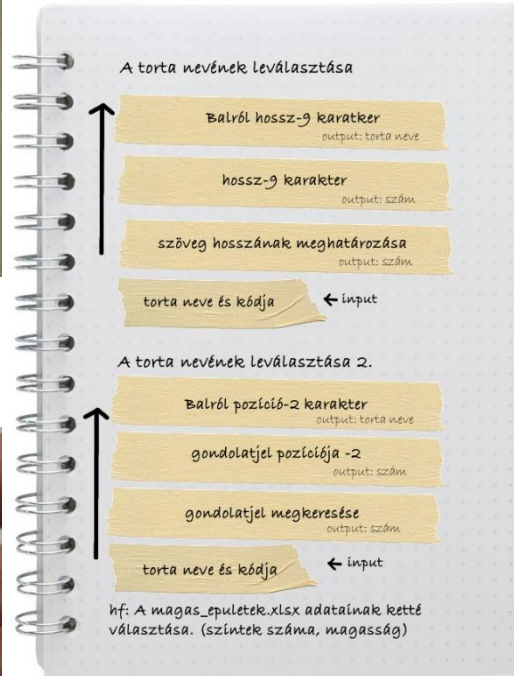 A torta nevének leválasztása
Balról hossz-9 karatker
output: torta neve
hossz-9 karakter
output: szám
szöveg hosszának meghatározása
output: szám
torta neve és kódja
← input
A torta nevének leválasztása 2.
Balról pozíció-2 karakter
output: torta neve
gondolatjel pozíciója -2
output: szám
gondolatjel megkeresése
output: szám
torta neve és kódja
← input
hf: A magas_epuletek.xlsx adatainak ketté
választása. (szintek száma, magasság)